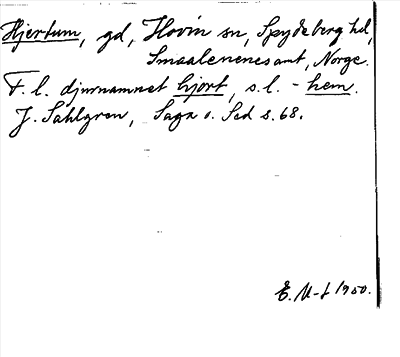 Hjertum, gd, Hovin sn, Spydeberg hd,
Smaalenenes amt, Norge.
F. l. djurnamnet hjort, s.l. - hem.
J. Sahlgren, Saga o. Sed s. 68.
E. M-f 1950.